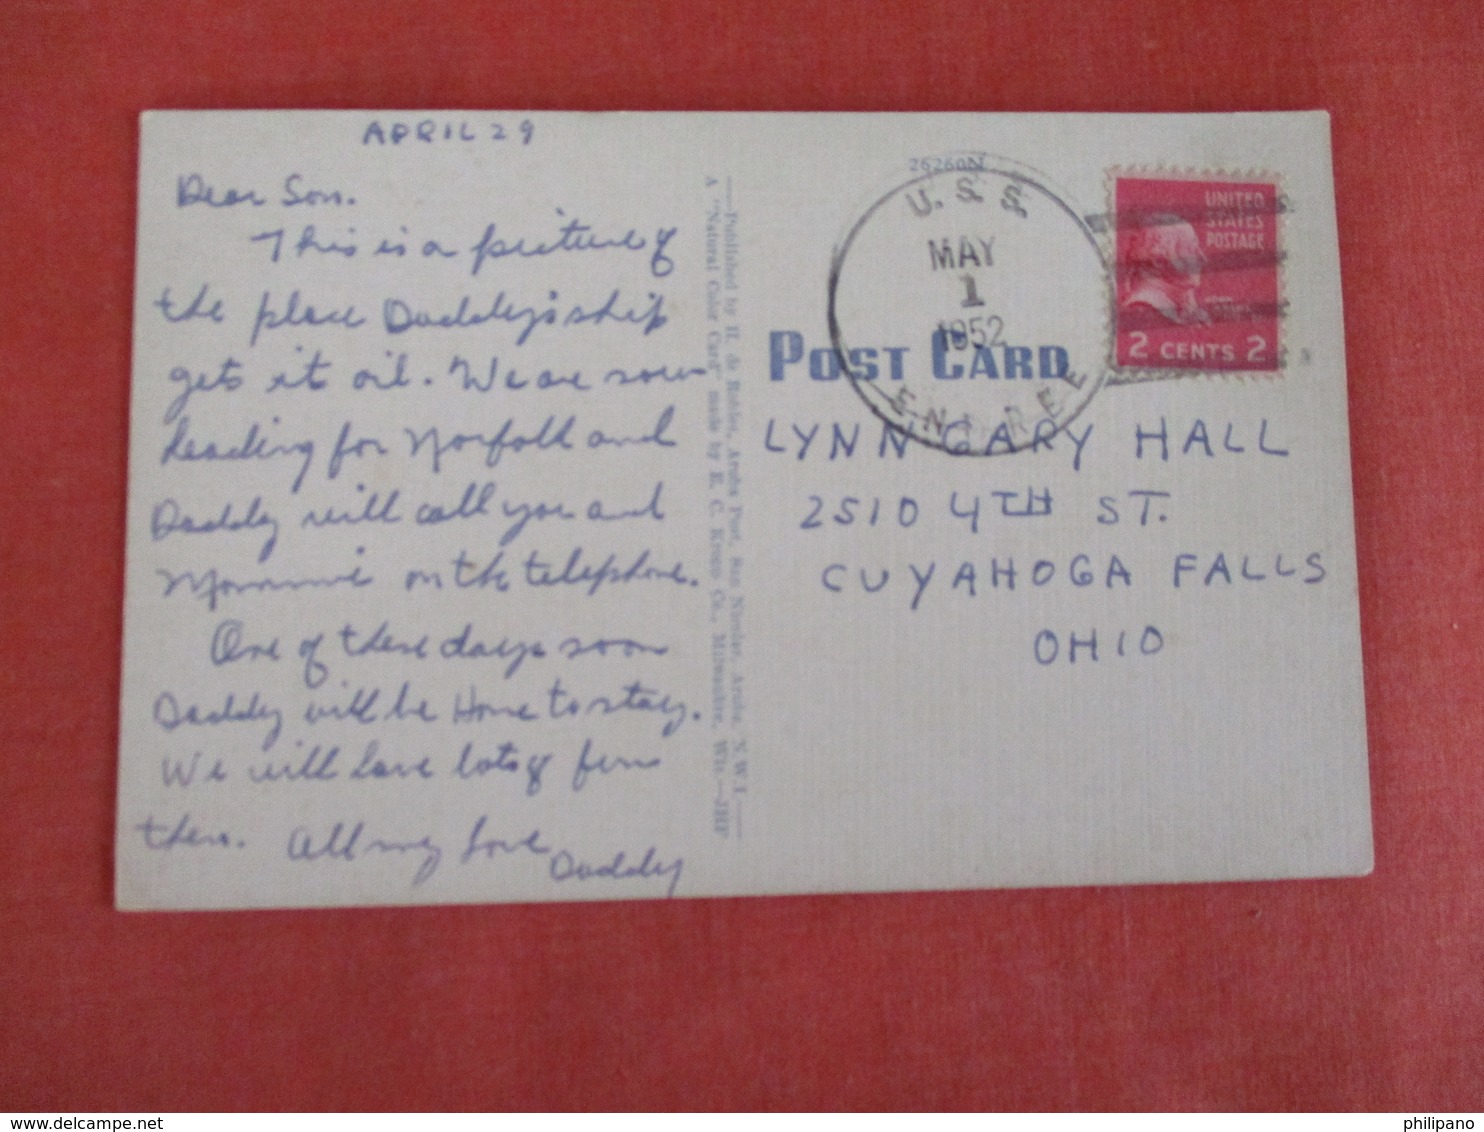 APRIL 29
Dear Son.
This is a picture of
the place Daddy's ship
gets it oil. We are now
heading for Norfolk and
Daddy will call you and
Mommie on the telephone.
One of these days soon
Daddy will be Home to stay.
We will have lots of fun
then. All my love
Daddy
—Published by H. de Robles, Aruba Post, San Nicolas, Aruba, N.W.I.—
A "Natural Color Card" made by E. C. Kropp Co., Milwaukee, Wis.—JHP
26260N
U.S.S.
MAY
1
1952
UNITED
STATES
POSTAGE
2 CENTS 2
POST CARD
LYNN GARY HALL
2510 4TH ST.
CUYAHOGA FALLS
OHIO
delcampe.net
philipano